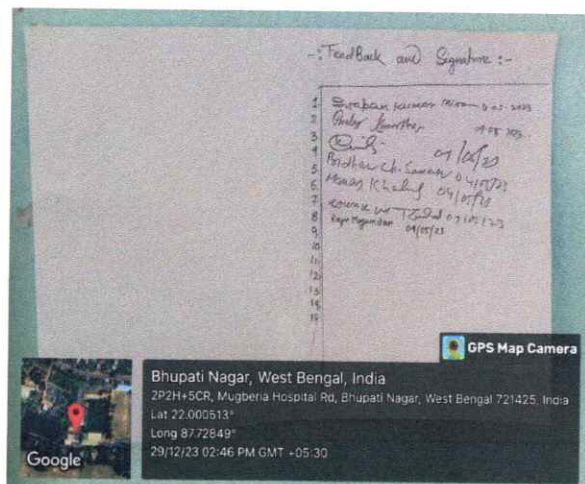 -: FeedBack and Signature :-
1 Swapan Kumar
2
3 04/05/23
4
5 Bidhan ch. Samanta 04/05/23
6 Manas 04/05/23
7 04/05/23
8 04/05/23
9
10
11
12
13
14
15
GPS Map Camera
Bhupati Nagar, West Bengal, India
2P2H+5CR, Mugberia Hospital Rd, Bhupati Nagar, West Bengal 721425, India
Lat 22.000513°
Long 87.72849°
29/12/23 02:46 PM GMT +05:30
Google